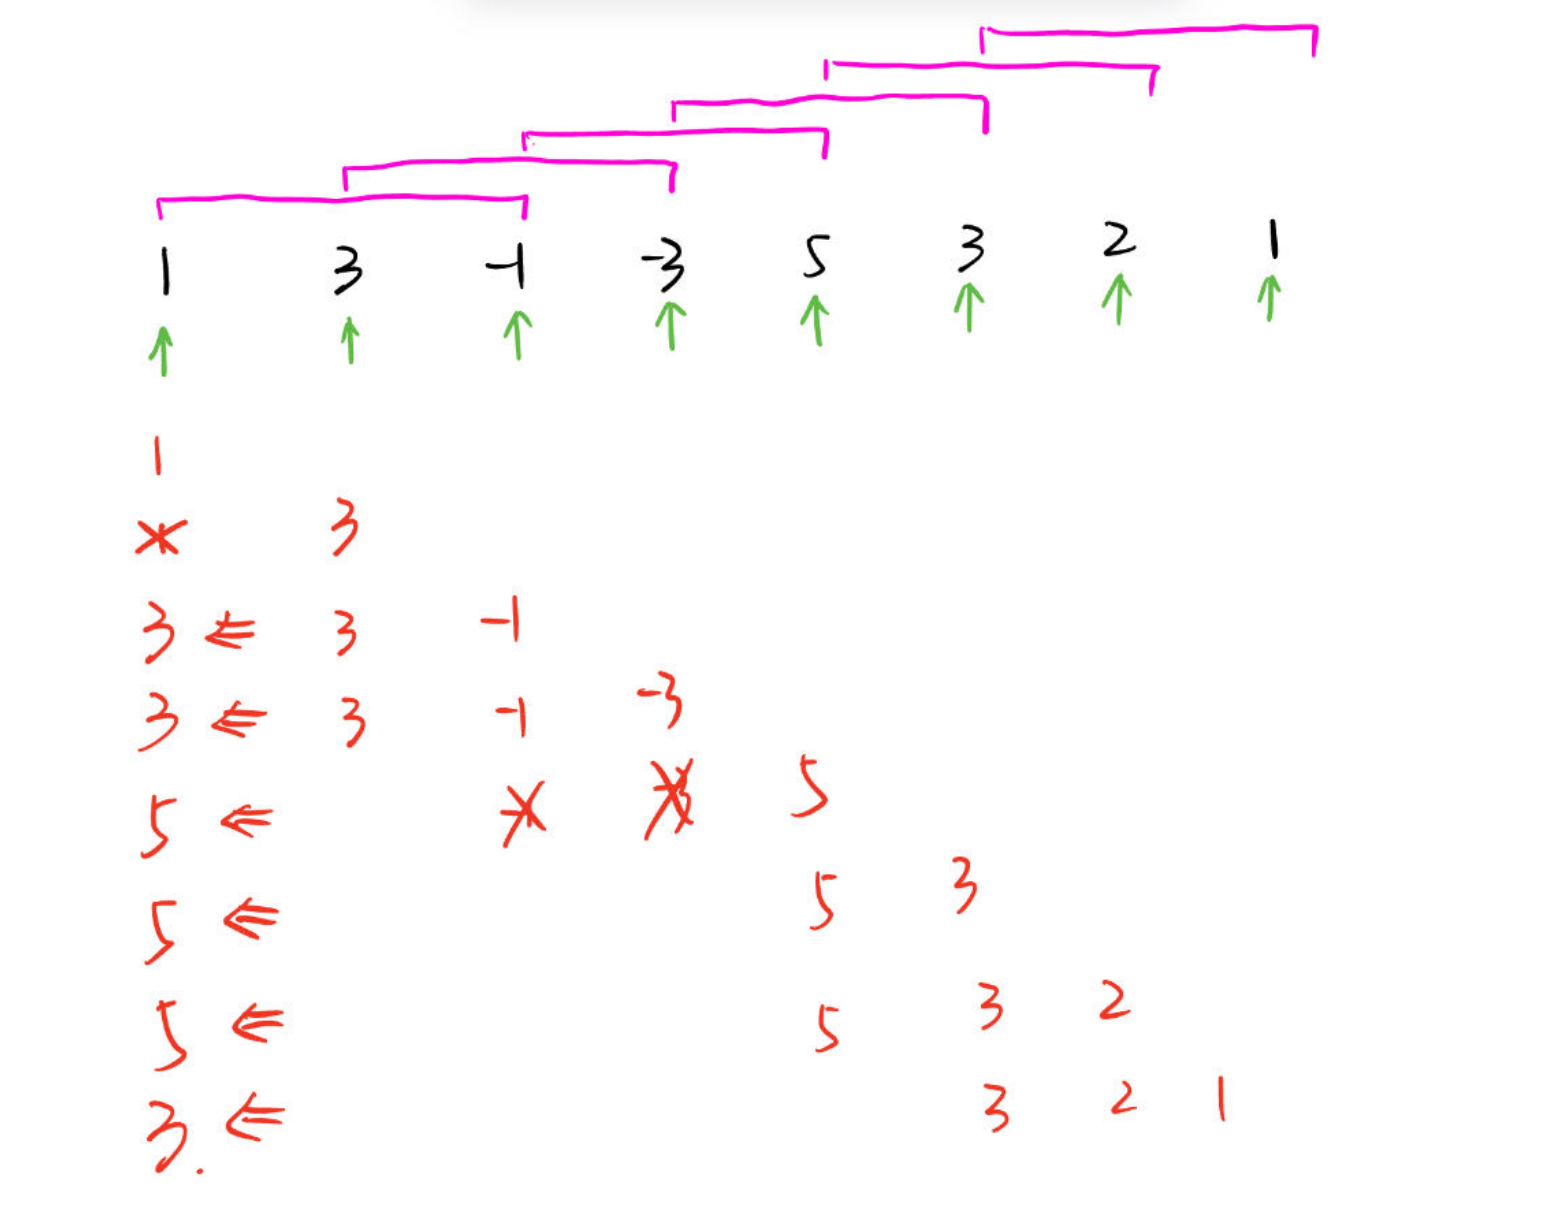 1 3 -1 -3 5 3 2 1
↑ ↑ ↑ ↑ ↑ ↑ ↑ ↑
1
3
3 ⇐ 3 -1
3 ⇐ 3 -1 -3
5 ⇐ 5
5 ⇐ 5 3
5 ⇐ 5 3 2
3. ⇐ 3 2 1